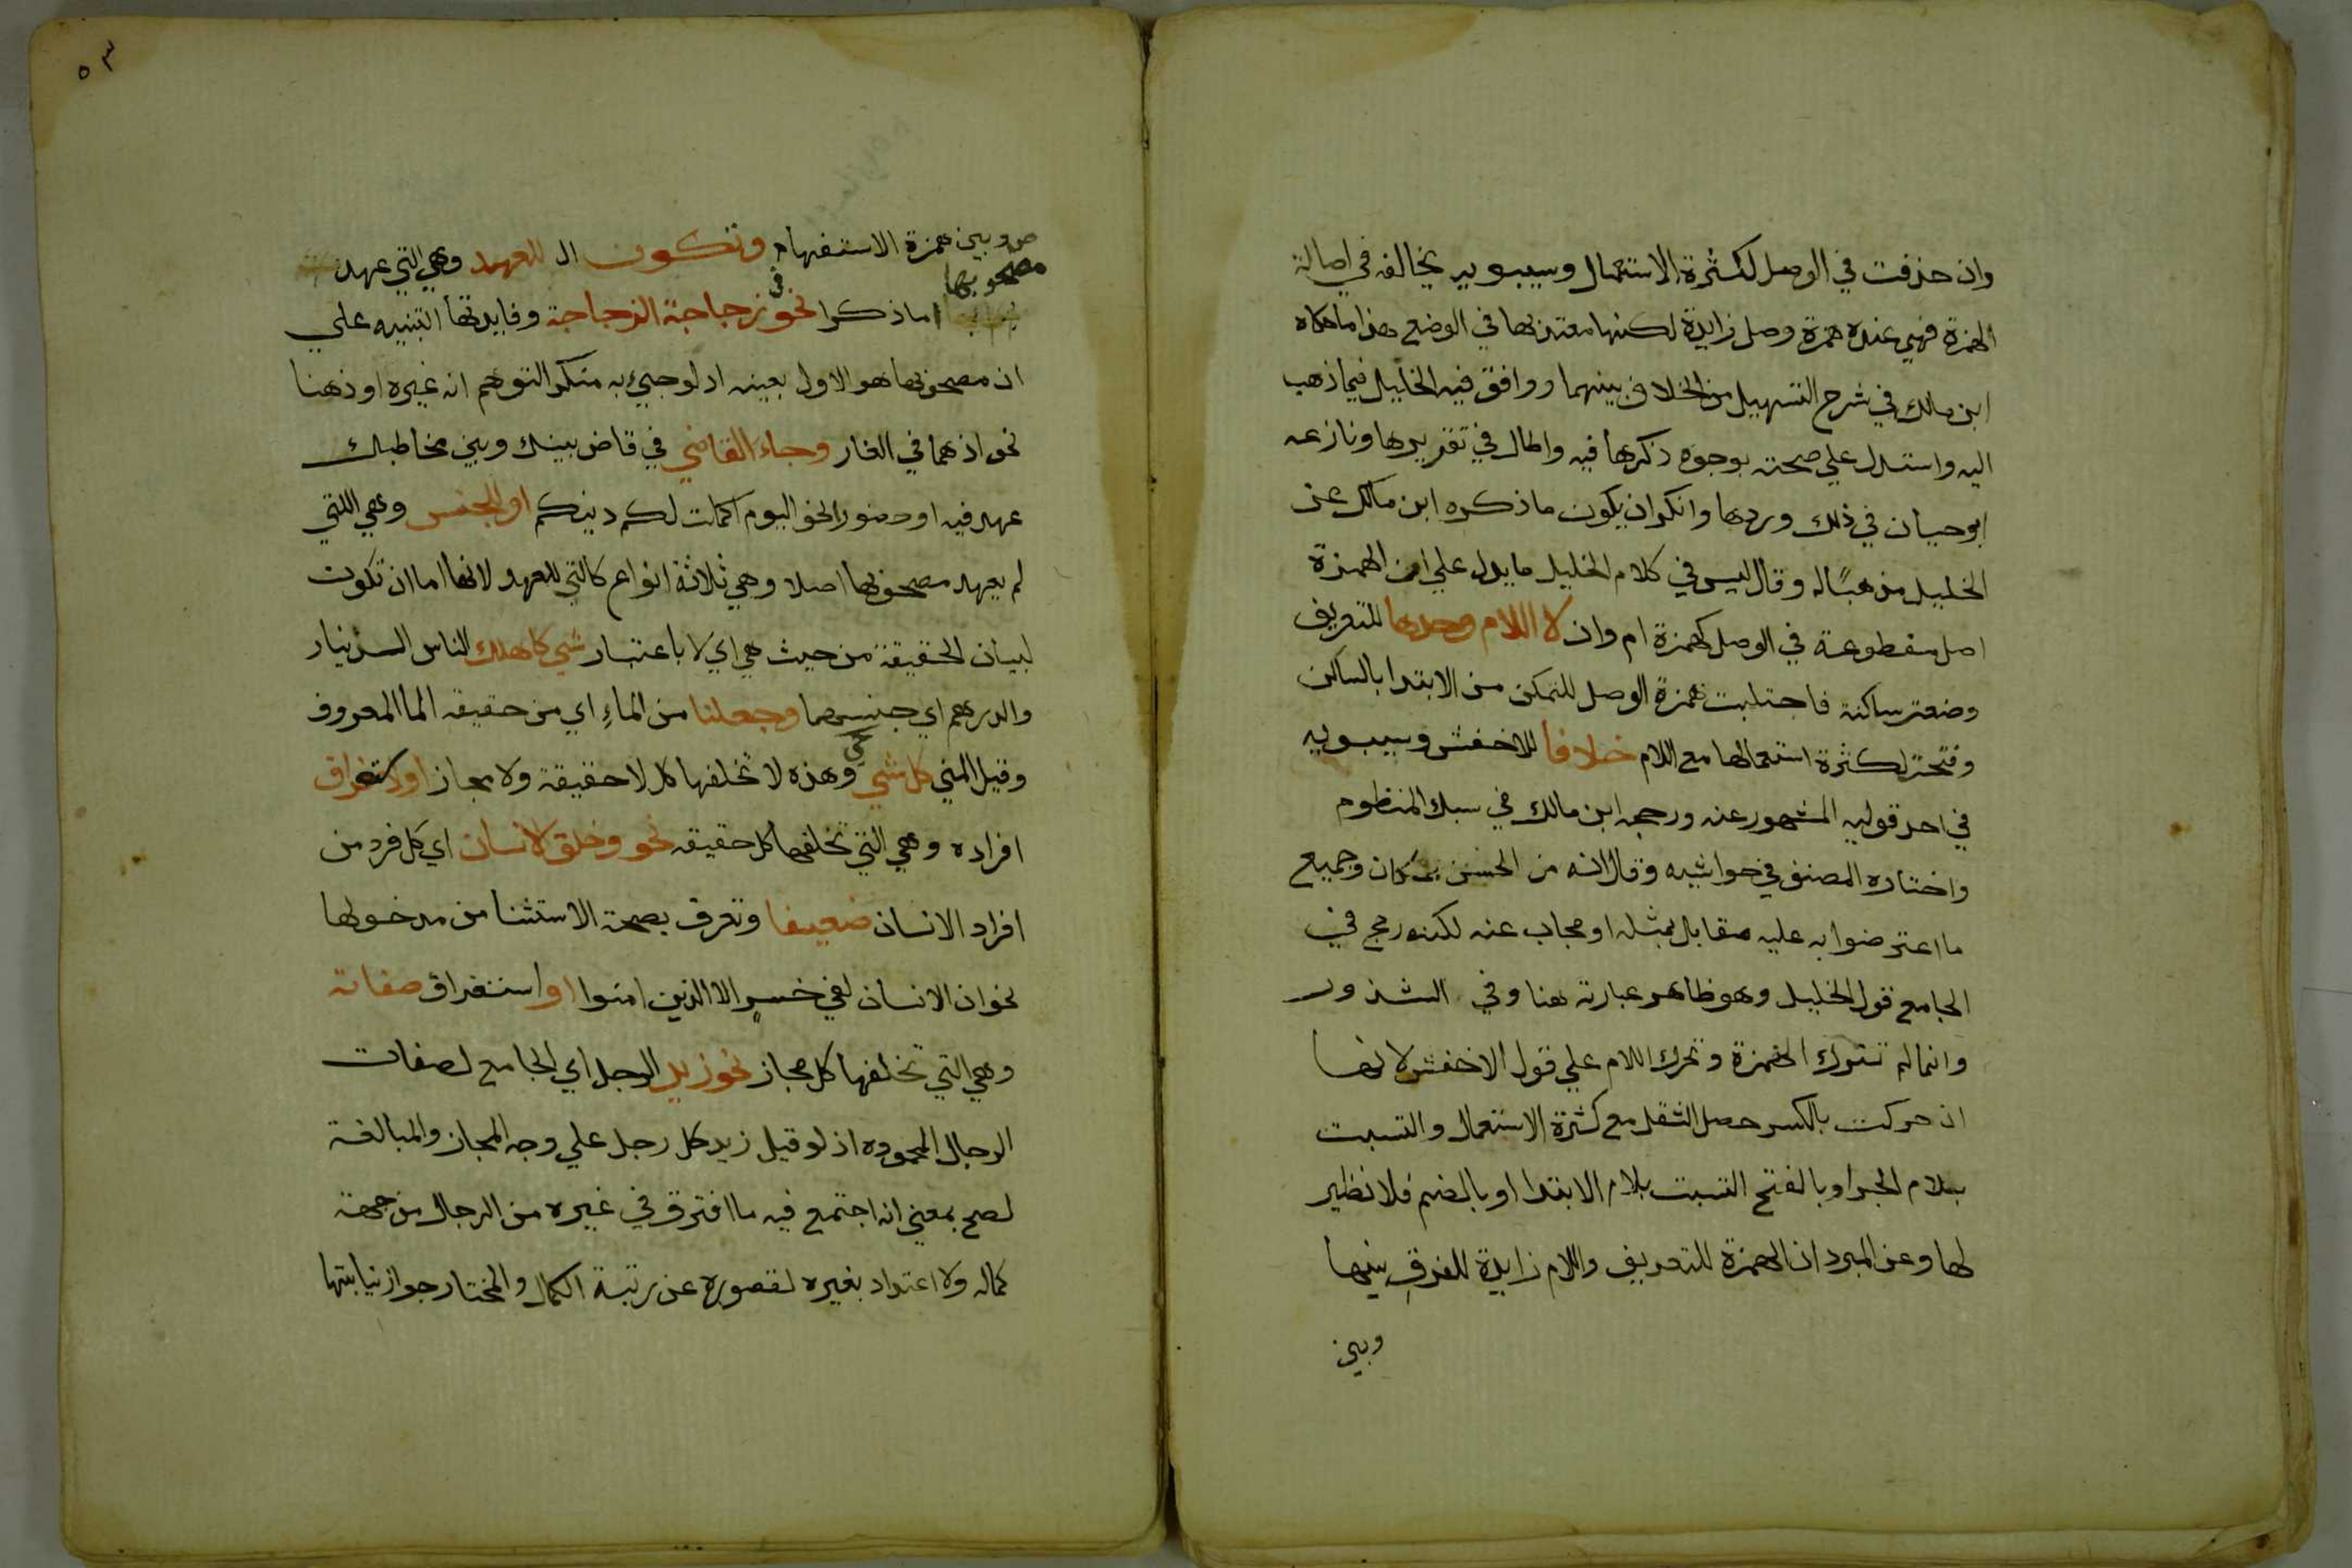 وان حذفت في الوصل لكثرة الاستعمال وسيبويه يخالفه في اصالة
الهمزة فهي عنده همزة وصل زايدة لكنها معتد بها في الوضع هذا ما حكاه
ابن مالك في شرح التسهيل من الخلاف بينهما ووافق فيه الخليل فيما ذهب
اليه واستدل علي صحته بوجوه ذكرها فيه واطال في تقريرها ونازعه
ابو حيان في ذلك وردها وانكر ان يكون ما ذكره ابن مالك عن
الخليل مذهبًا له وقال ليس في كلام الخليل ما يدل علي ان الهمزة
اصل مقطوعة في الوصل كهمزة ام وان لا اللام وحدها للتعريف
وضعت ساكنة فاجتلبت همزة الوصل للتمكن من الابتدا بالساكن
وفتحت لكثرة استعمالها مع اللام خلافا للاخفش وسيبويه
في احد قوليه المشهور عنه ورجحه ابن مالك في سبك المنظوم
واختاره المصنف في حواشيه وقال انه من الحسن بمكان وجميع
ما اعترضوا به عليه مقابل بمثله او مجاب عنه لكنه رجح في
الجامع قول الخليل وهو ظاهر عبارته هنا وفي الشذور
وانما لم تترك الهمزة وتحرك اللام علي قول الاخفش لانها
ان حركت بالكسر حصل الثقل مع كثرة الاستعمال والتبست
بلام الجر او بالفتح التبست بلام الابتدا او بالضم فلا نظير
لها وعن المبرد ان الهمزة للتعريف واللام زايدة للفرق بينها
وبين
٥٣
وبين همزة الاستفهام وتكون ال للعهد وهي التي عهد
مصحوبها
اما ذكرا نحو في زجاجة الزجاجة وفايدتها التنبيه علي
ان مصحوبها هو الاول بعينه اذ لو جيء به منكرا لتوهم انه غيره او ذهنا
نحو اذ هما في الغار وجاء القاضي في قاض بينك وبين مخاطبك
عهد فيه او حضورا نحو اليوم اكملت لكم دينكم او للجنس وهي اللتي
لم يعهد مصحوبها اصلا وهي ثلاثة انواع كالتي للعهد لانها اما ان تكون
لبيان الحقيقة من حيث هي اي لا باعتبار شي كاهلك الناس الدينار
والدرهم اي جنسهما وجعلنا من الماءِ اي من حقيقه الما المعروف
وقيل المني كل شي حي وهذه لا تخلفها كل لا حقيقة ولا مجاز او لاستغراق
افراده وهي التي تخلفها كل حقيقه نحو وخلق الانسان اي كل فرد من
افراد الانسان ضعيفا وتعرف بصحة الاستثنا من مدخولها
نحو ان الانسان لفي خسرٍ الا الذين امنوا او استغراق صفاته
وهي التي تخلفها كل مجاز نحو زيد الرجل اي الجامع لصفات
الرجال المحموده اذ لو قيل زيد كل رجل علي وجه المجاز والمبالغة
لصح بمعني انه اجتمع فيه ما افترق في غيره من الرجال من جهة
كماله ولا اعتداد بغيره لقصوره عن رتبة الكمال والمختار جواز نيابتها